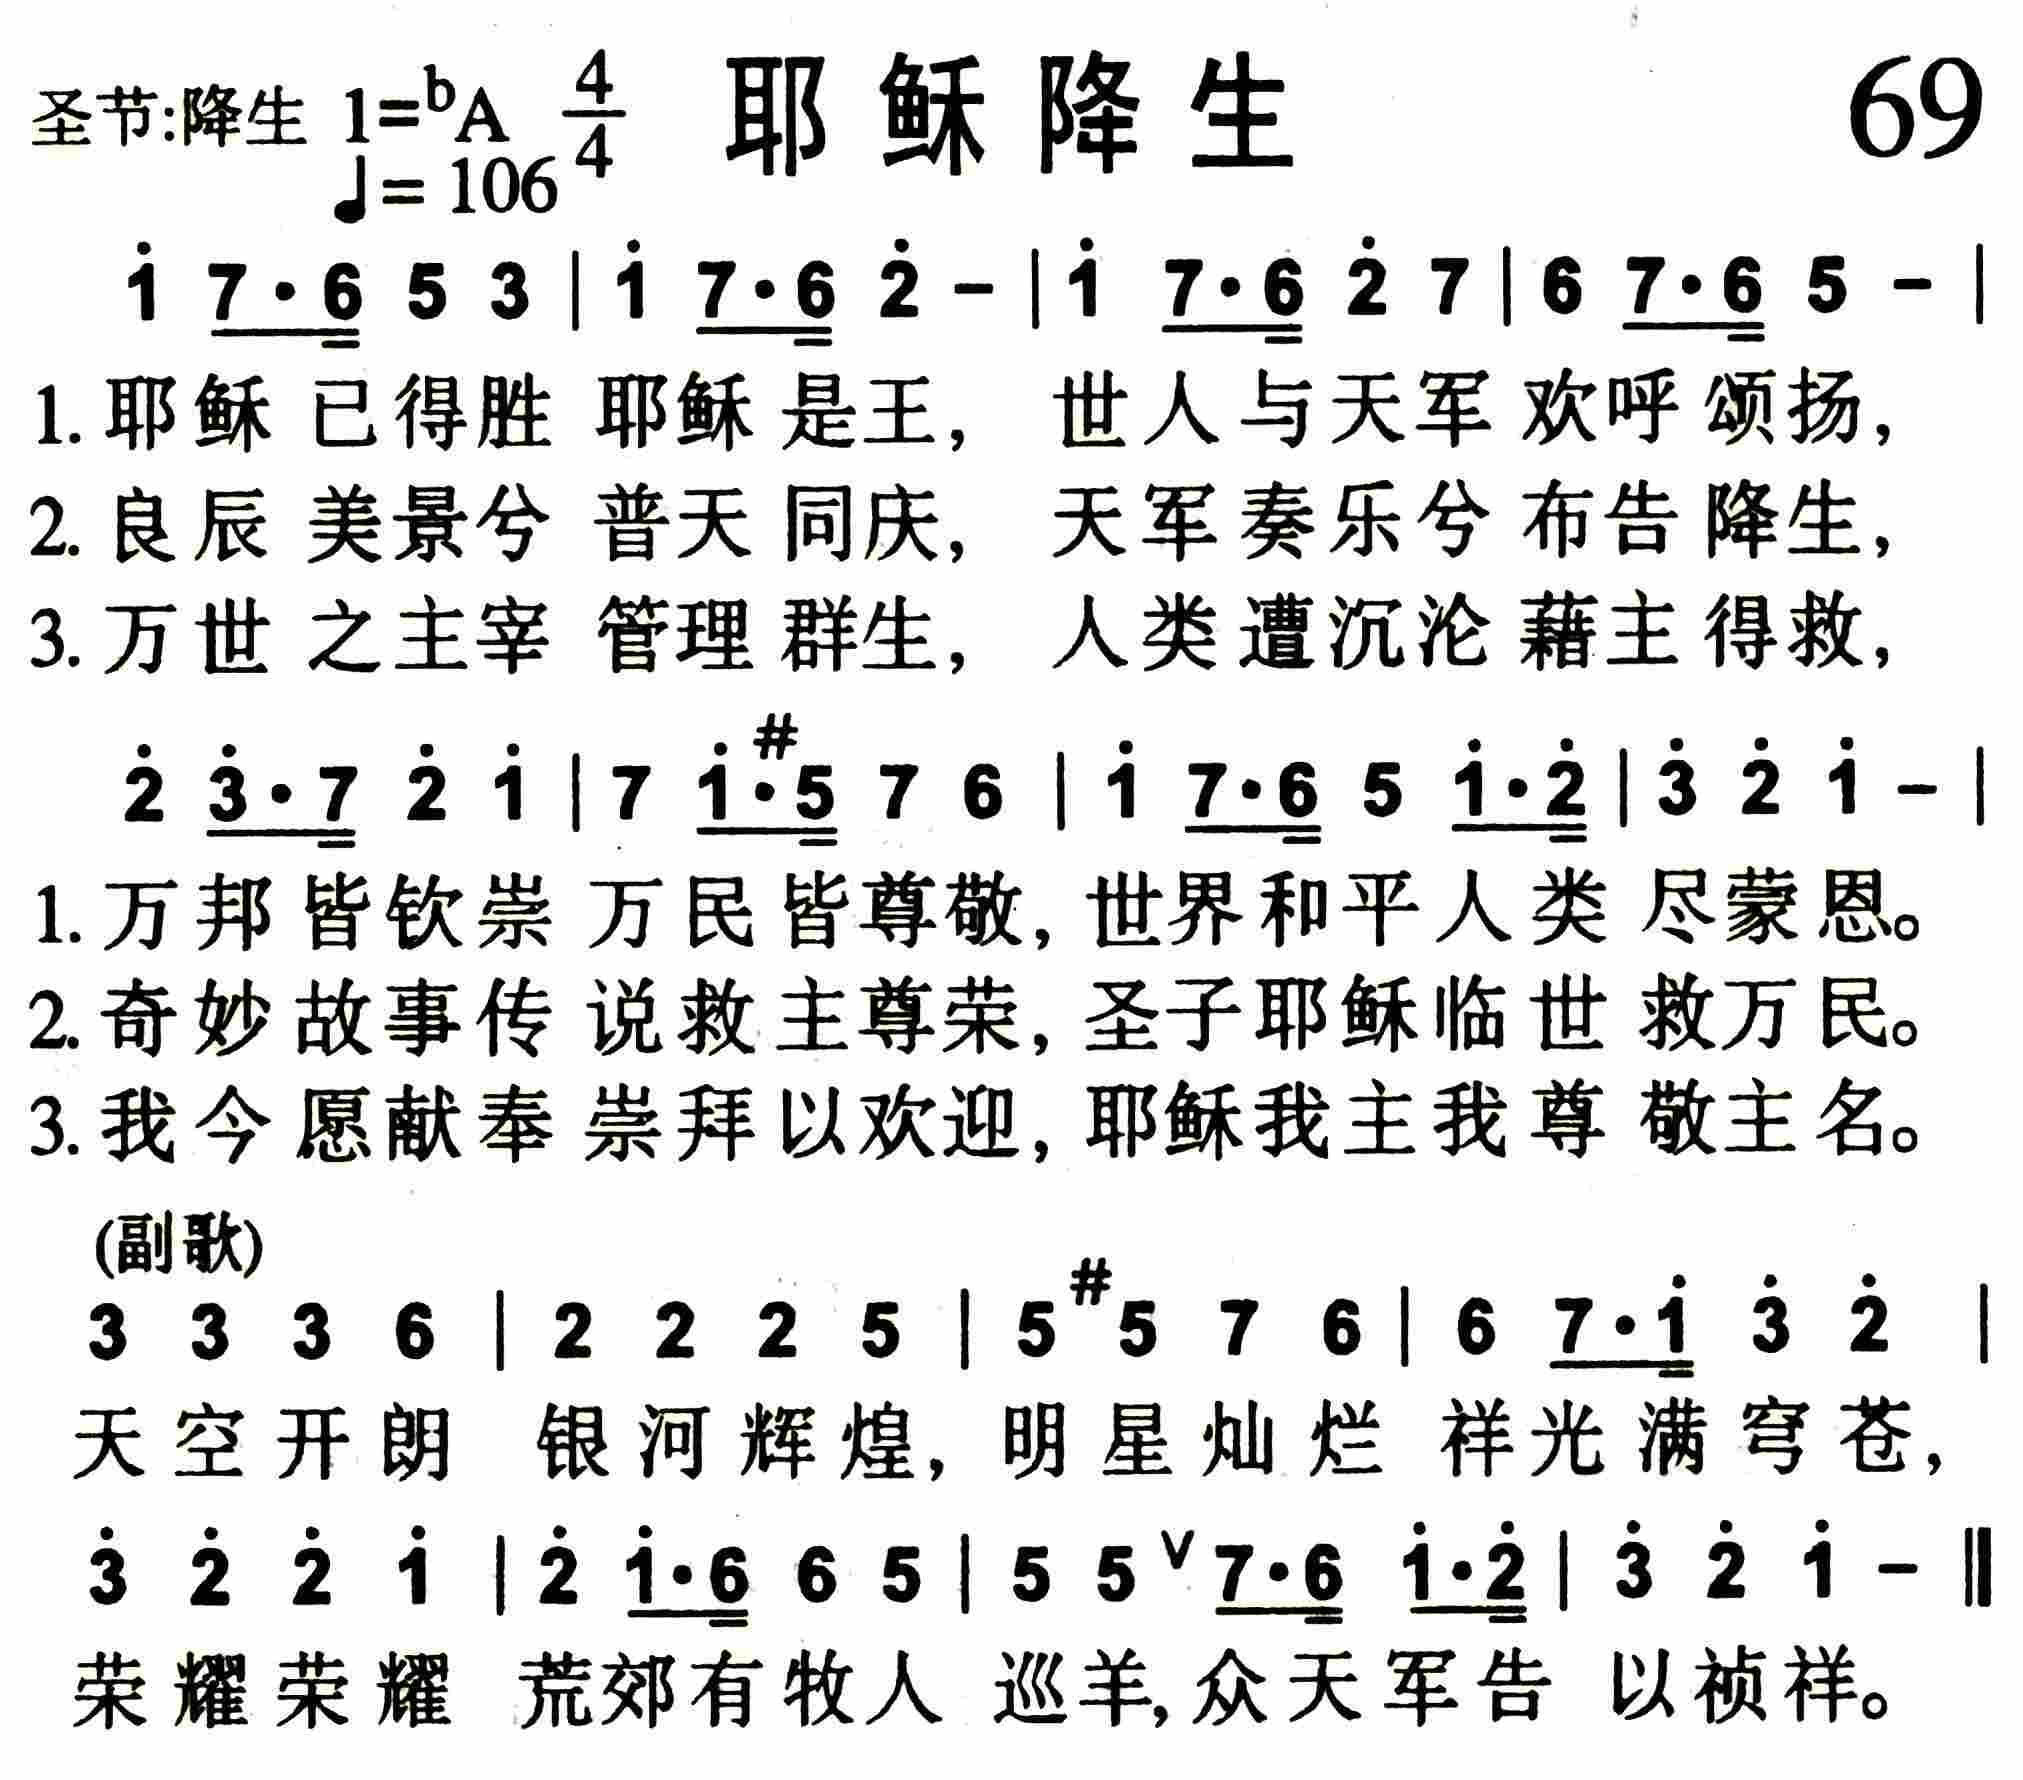 圣节:降生 1=bA 4/4 耶稣降生 69
♩=106
1̇ 7·6 5 3 | 1̇ 7·6 2̇ - | 1̇ 7·6 2̇ 7 | 6 7·6 5 - |
1. 耶稣 已得胜 耶稣 是王, 世人与天军 欢呼颂扬,
2. 良辰 美景兮 普天 同庆, 天军奏乐兮 布告降生,
3. 万世 之主宰 管理 群生, 人类遭沉沦 藉主得救,
2̇ 3̇·7 2̇ 1̇ | 7 1̇·#5 7 6 | 1̇ 7·6 5 1̇·2̇ | 3̇ 2̇ 1̇ - |
1. 万邦皆钦崇 万民皆尊敬, 世界和平人类 尽蒙恩。
2. 奇妙故事传 说救主尊荣, 圣子耶稣临世 救万民。
3. 我今愿献奉 崇拜以欢迎, 耶稣我主我尊 敬主名。
(副歌)
3 3 3 6 | 2 2 2 5 | 5 #5 7 6 | 6 7·1̇ 3̇ 2̇ |
天空开朗 银河辉煌, 明星灿烂 祥光满穹苍,
3̇ 2̇ 2̇ 1̇ | 2̇ 1̇·6 6 5 | 5 5 ∨ 7·6 1̇·2̇ | 3̇ 2̇ 1̇ - ‖
荣耀荣耀 荒郊有牧人 巡羊, 众天军告 以祯祥。